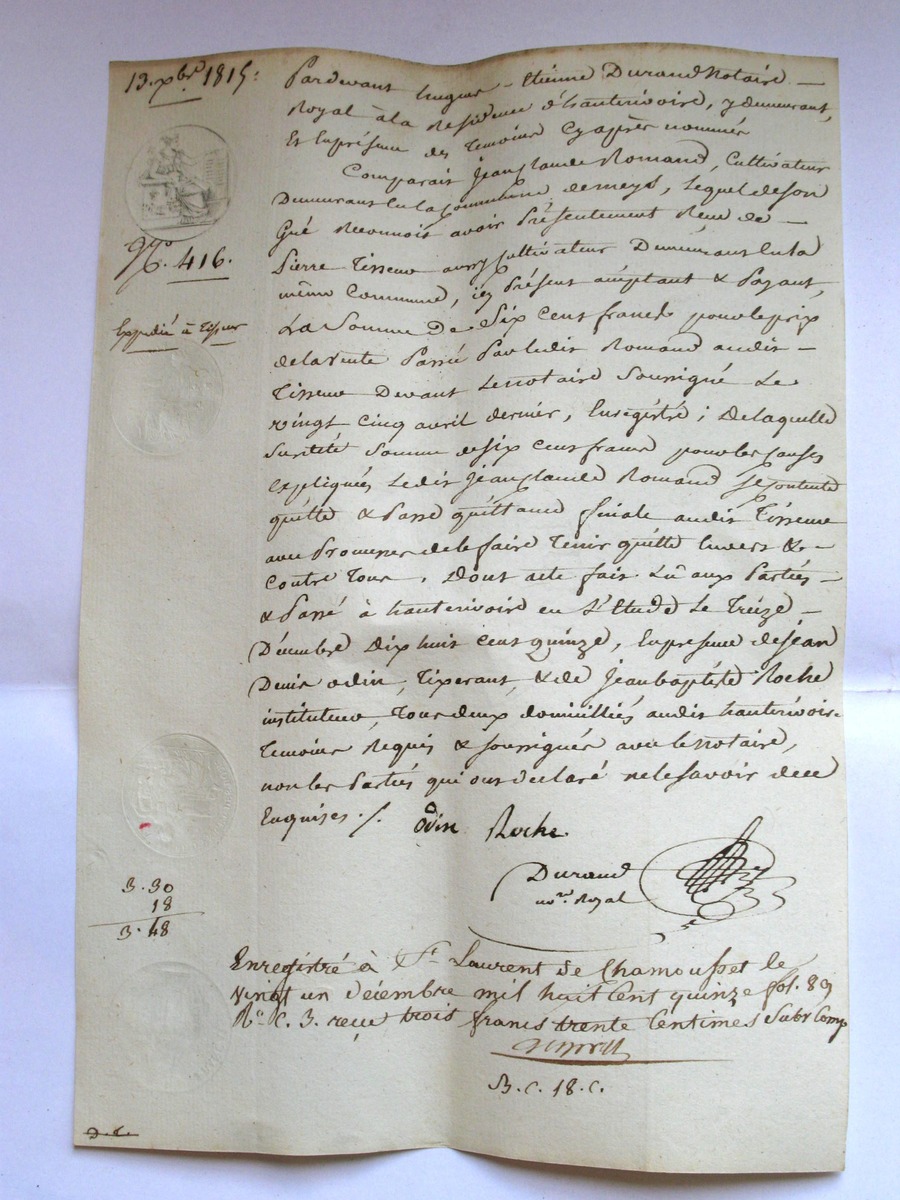 13. xbre 1815:
Pardevant hugues - Etienne Durand Notaire —
Royal à la Residence d'hauterivoire, y demeurant,
Et En présence des Temoins Cy après nommés
Comparait Jean Claude Romand, Cultivateur
Demeurant En la Commune demeys, Lequel de son
Gré Reconnoit avoir Présentement Reçu de —
Pierre Tisseur aussy Cultivateur Demeurant En la
N.o 416.
même Commune, icy Présent acceptant & Payant,
Expedié à Tisseur
La Somme De Six Cent francs pour le prix
de la vente Passée Par ledit Romand audit —
Tisseur Devant Le Notaire Soussigné Le
vingt Cinq avril dernier, Enregistré ; De laquelle
Susditte Somme de six cent francs pour les Causes
Expliquées Ledit Jean Claude Romand Se Contente
quitte & Passe quittance finale audit Tisseur
avec Promesse de le faire Tenir quitte Envers & —
Contre Tous. Dont acte fait Lû aux Parties —
& Passé à hauterivoire en L'Etude Le Treize —
Décembre Dix huit cent quinze, En presence de Jean
Denis odin, Tixerant, & de Jean baptiste Roche
instituteur, Tous deux domiciliés audit hauterivoire
Temoins Requis & soussignés avec le Notaire,
non les Parties qui ont déclaré ne le savoir de ce
Enquises ./.
Odin Roche
Durand
no.re Royal
3. 30
18
3. 48
Enregistré à St Laurent de Chamousset le
vingt un décembre mil huit Cent quinze fol. 89
R.o C. 3. reçu trois francs trente Centimes Subv Comp
3. C. 18. C.